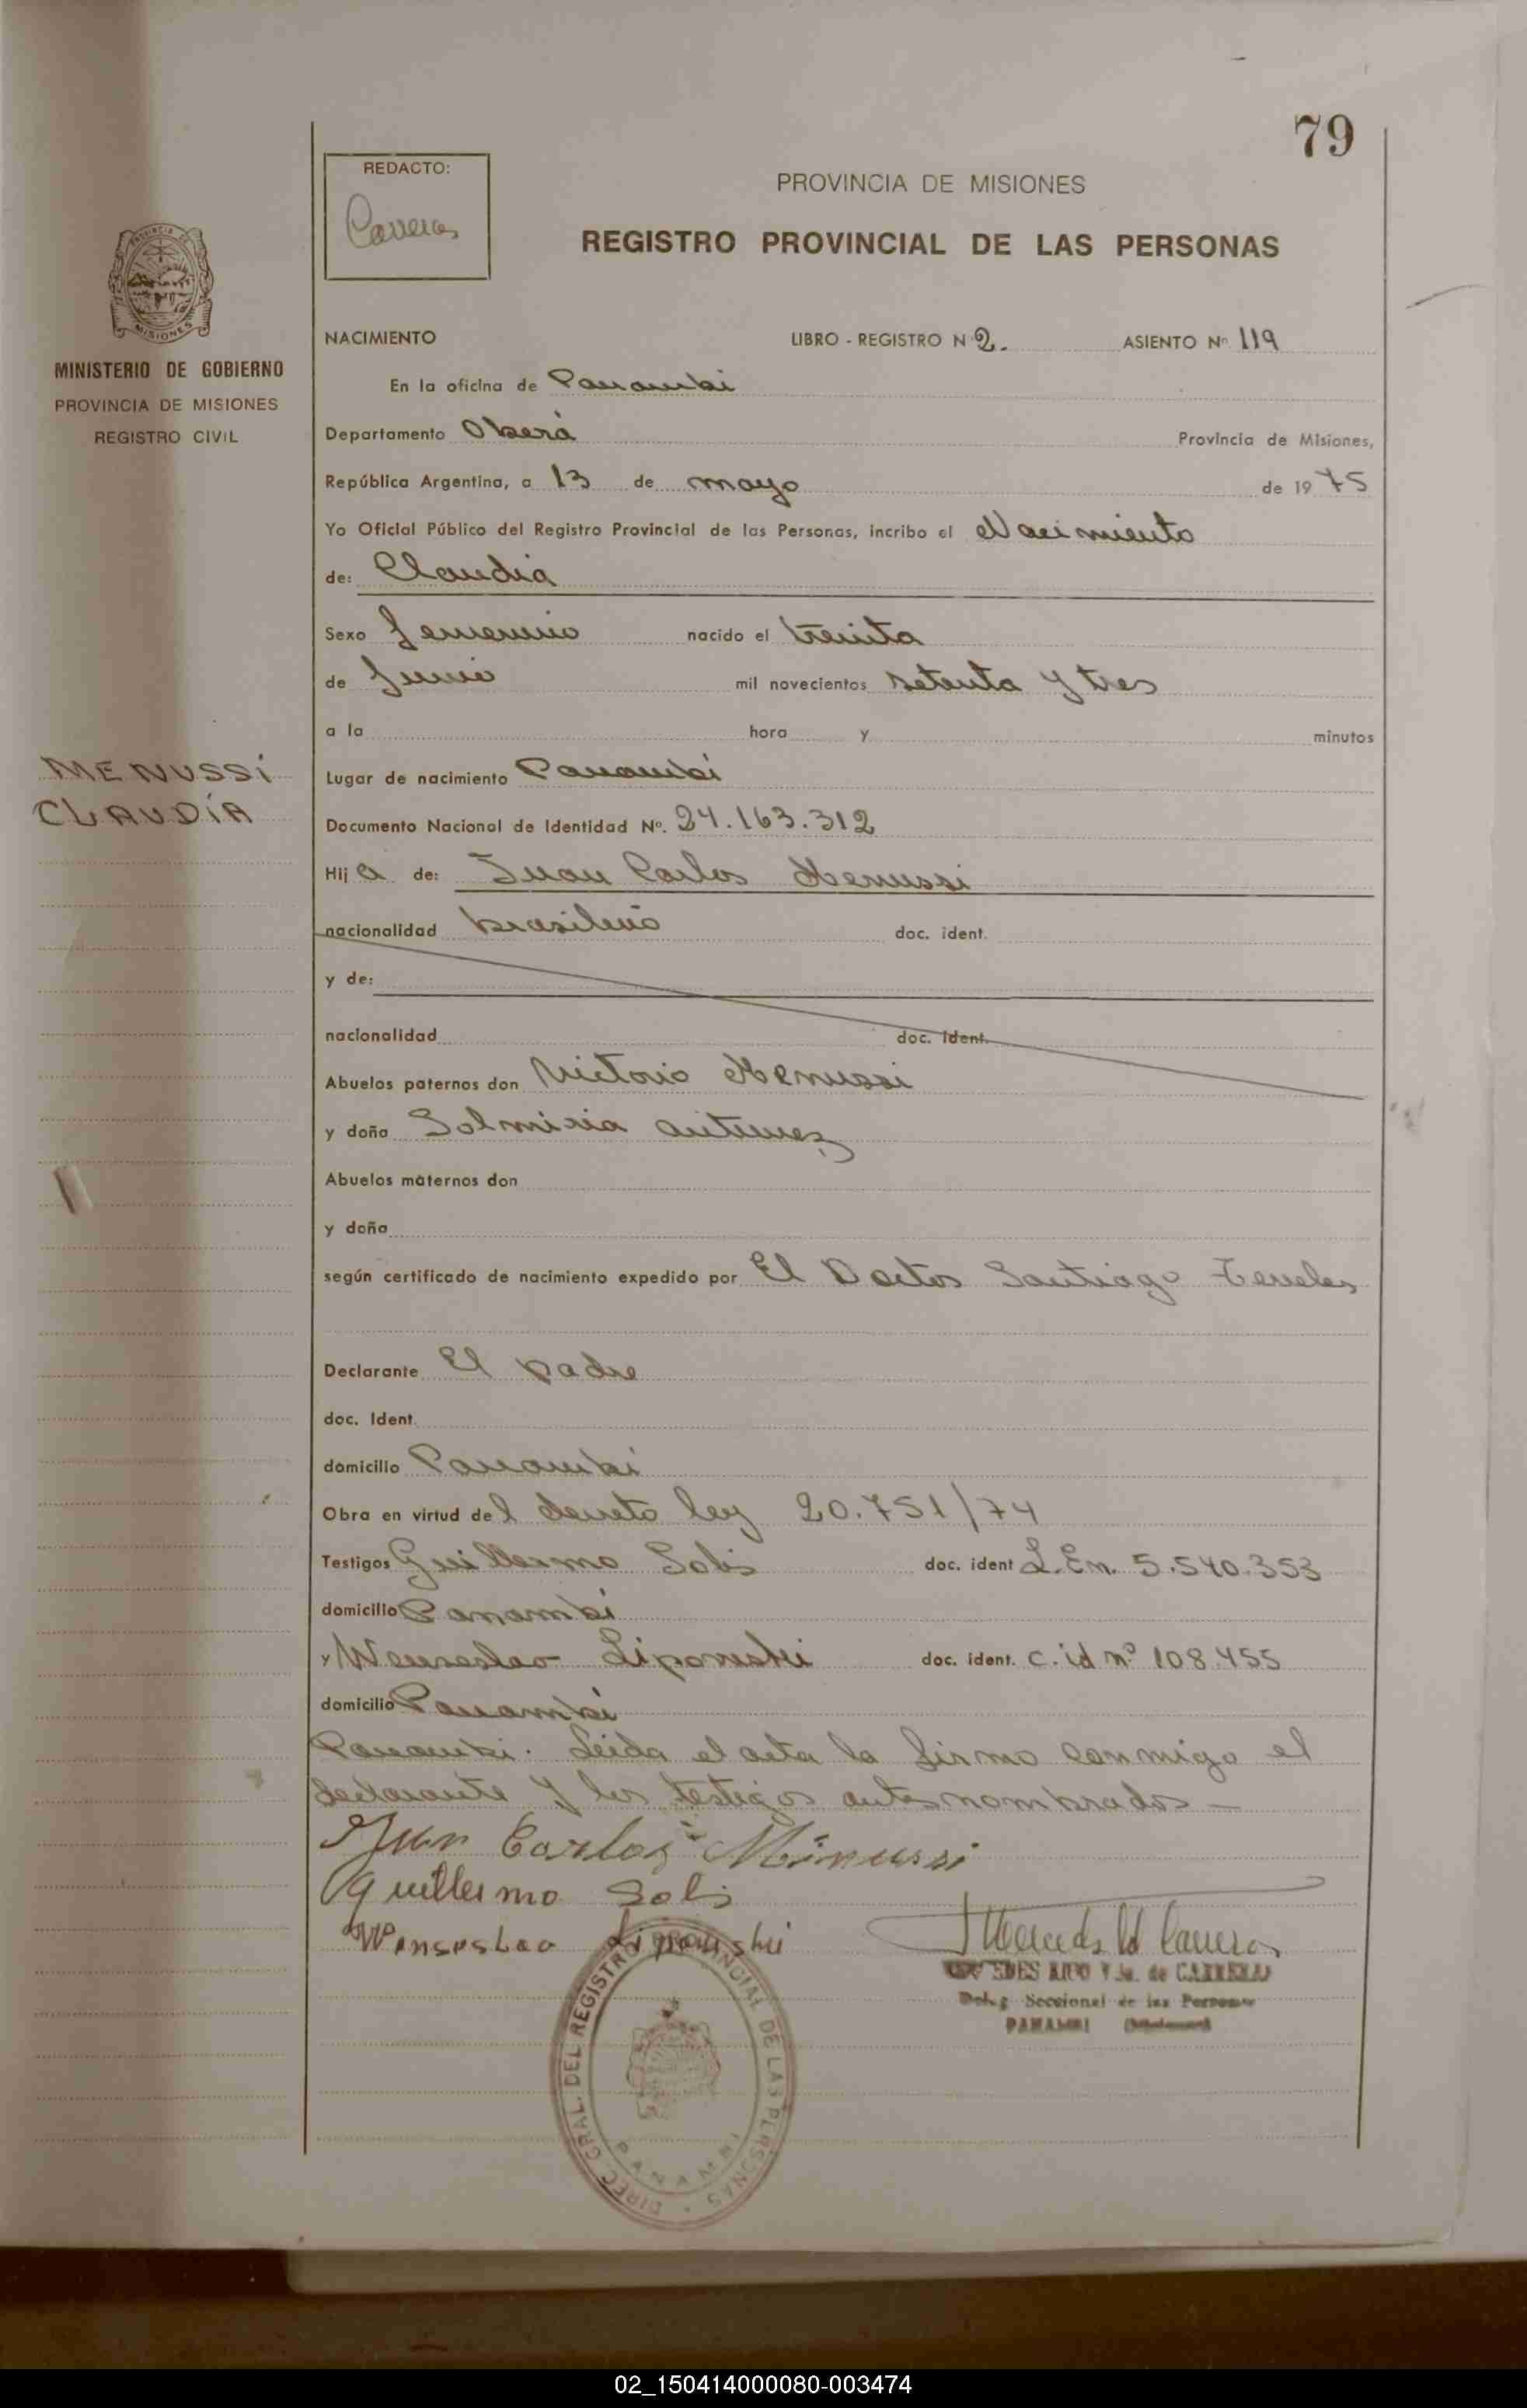 79
REDACTO:
Carreras
PROVINCIA DE MISIONES
REGISTRO PROVINCIAL DE LAS PERSONAS
PROVINCIA DE
MISIONES
MINISTERIO DE GOBIERNO
PROVINCIA DE MISIONES
REGISTRO CIVIL
MENUSSI
CLAUDIA
NACIMIENTO LIBRO - REGISTRO Nº 2. ASIENTO Nº 119
En la oficina de Panambi
Departamento Oberá Provincia de Misiones,
República Argentina, a 13 de mayo de 1975
Yo Oficial Público del Registro Provincial de las Personas, incribo el Nacimiento
de: Claudia
Sexo femenino nacido el treinta
de Junio mil novecientos setenta y tres
a la hora y minutos
Lugar de nacimiento Panambi
Documento Nacional de Identidad Nº. 24.163.312
Hija de: Juan Carlos Menussi
nacionalidad brasileño doc. ident.
y de:
nacionalidad doc. ident.
Abuelos paternos don Victorio Menussi
y doña antunez
Abuelos maternos don
y doña
según certificado de nacimiento expedido por El Doctor Santiago
Declarante El padre
doc. Ident.
domicilio Panambi
Obra en virtud del decreto ley 20.751/74
Testigos Guillermo Solis doc. ident L.En. 5.540.353
domicilio Panambi
y Wenseslao Liponski doc. ident. c.id nº 108.455
domicilio Panambi
Panambi. Leida el acta la firma conmigo el
declarante y los testigos antes nombrados -
Juan Carlos Minussi
Guillermo Solis
Wenseslao Liponski
MERCEDES RICO Vda. de CARRERAS
Deleg. Seccional de las Personas
PANAMBI (Misiones)
DIREC. GRAL. DEL REGISTRO PROVINCIAL DE LAS PERSONAS
PANAMBI
02_150414000080-003474